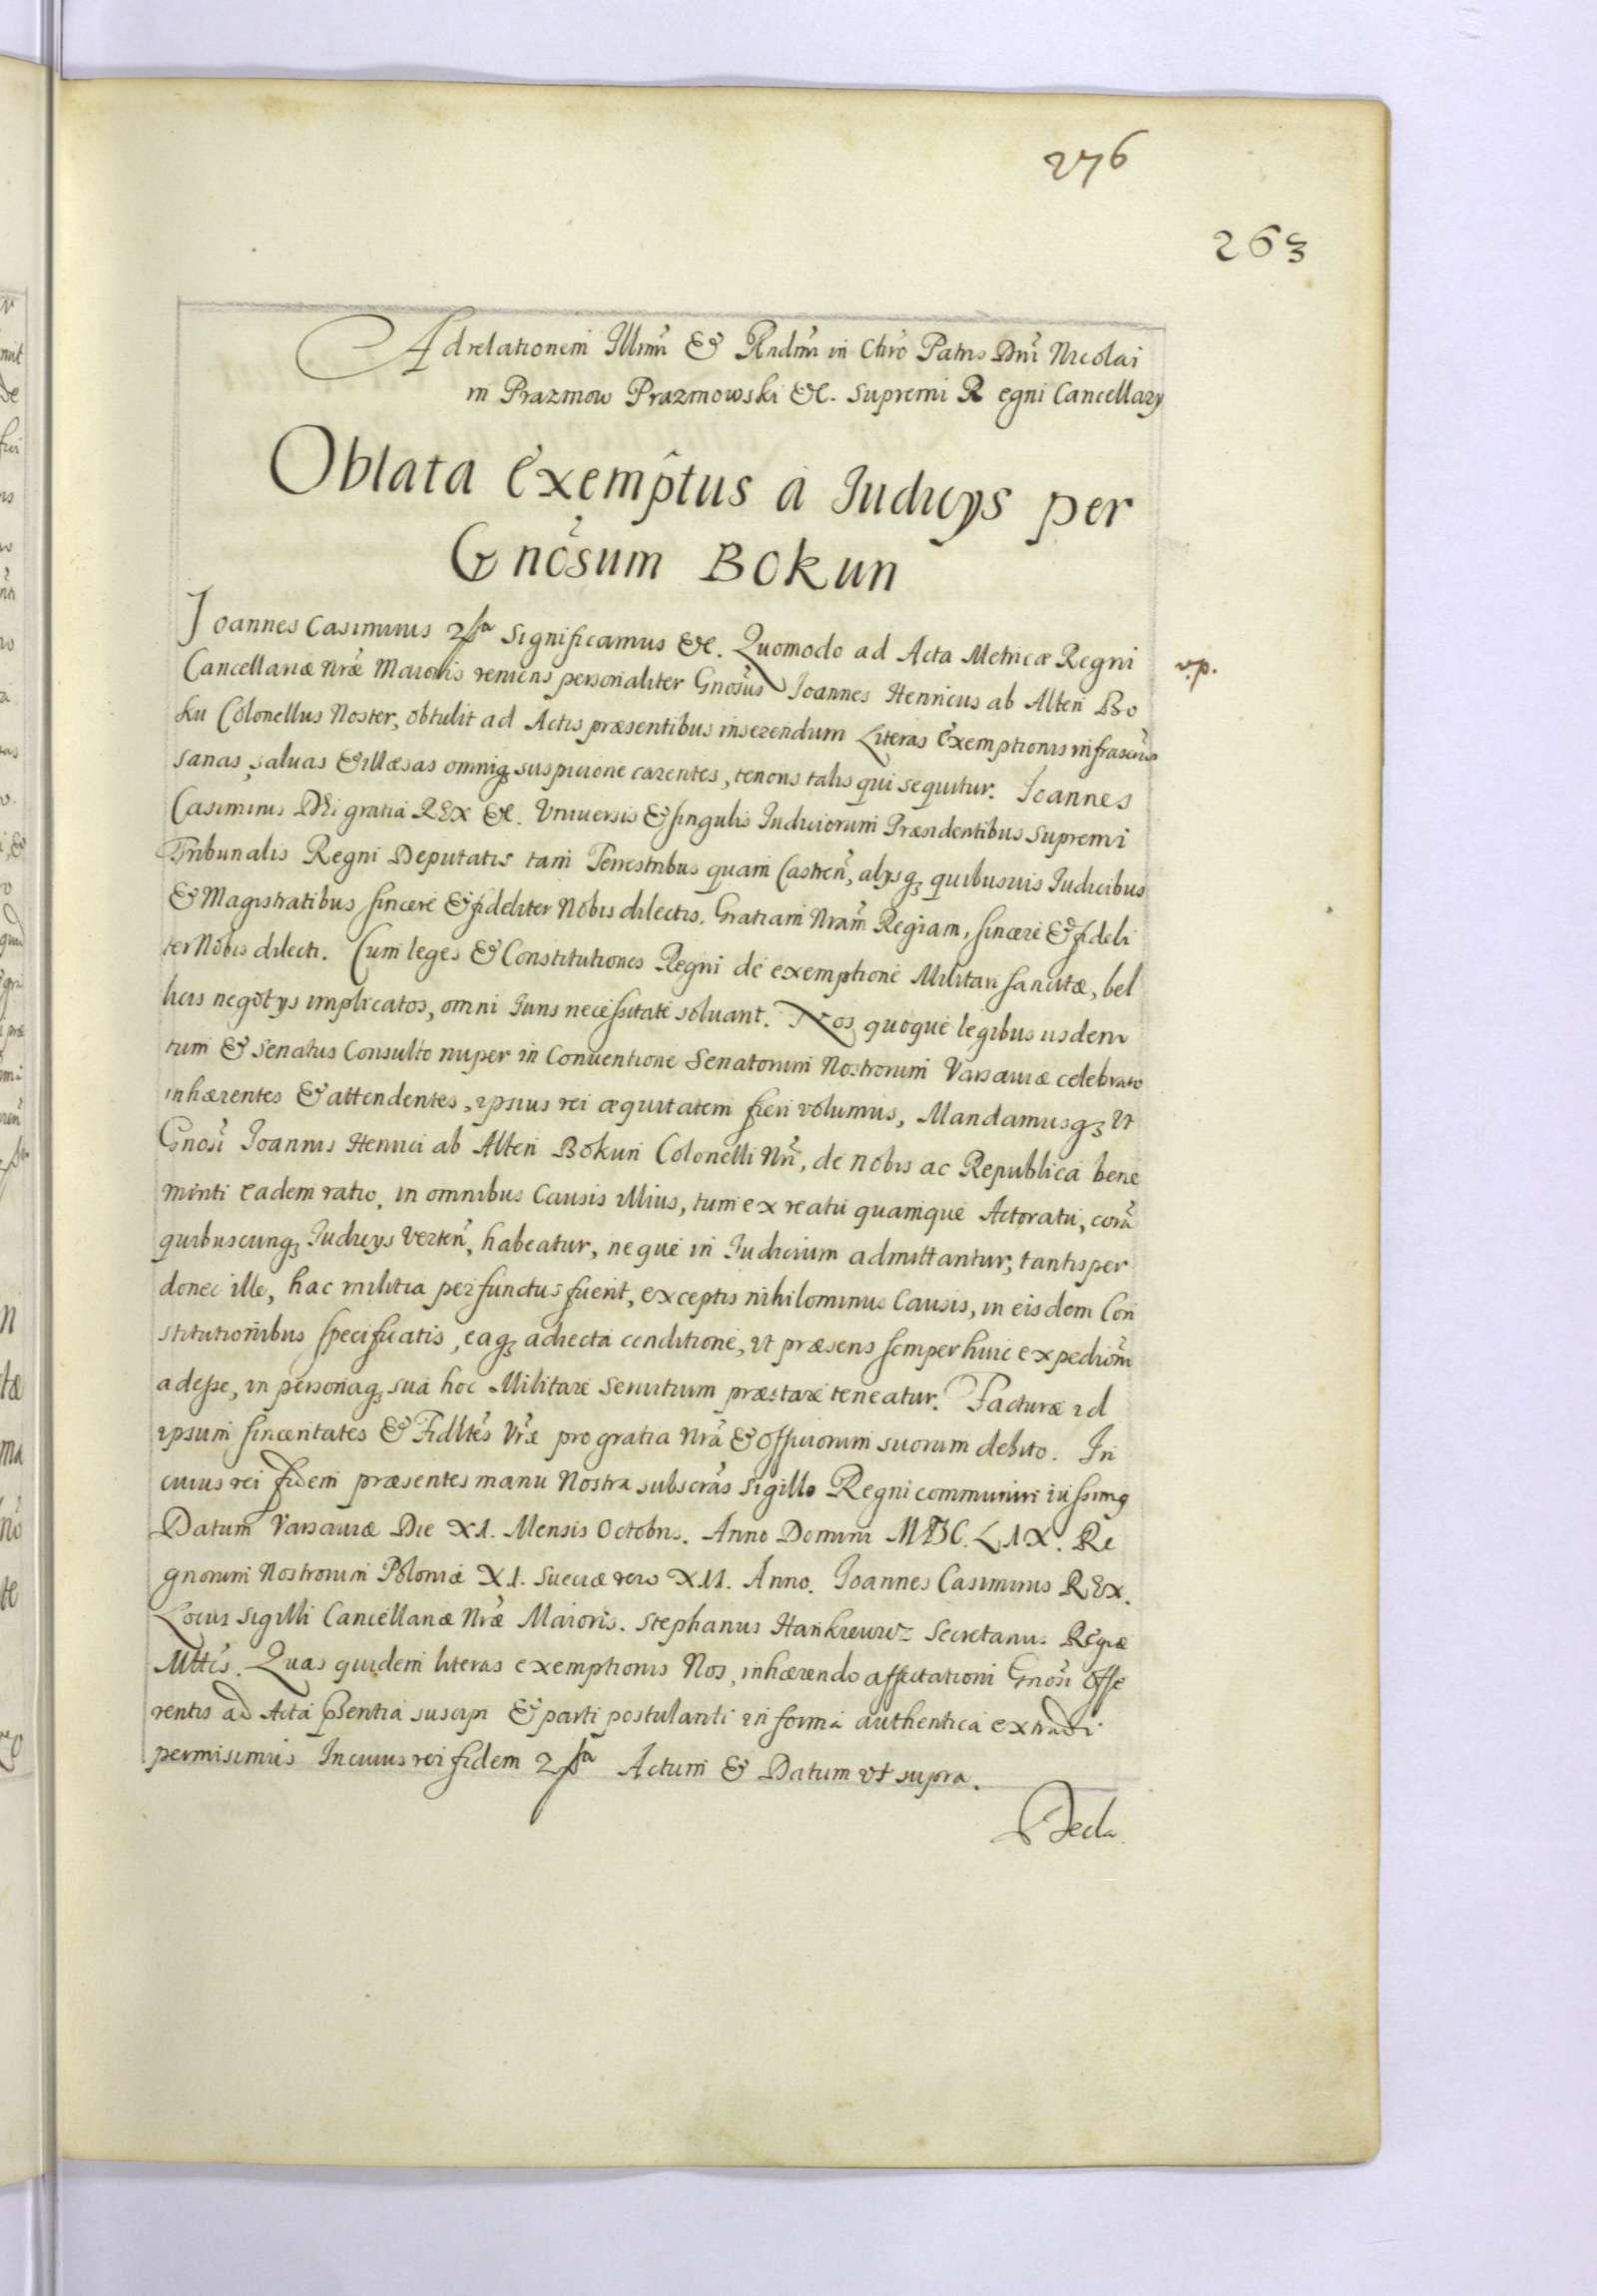 276
263
Ad relationem Illmi & Rndmi in Chro Patris Dni Nicolai
in Prazmow Prazmowski &c. Supremi Regni Cancellarÿ
Oblata Exemptus a Iudicÿs per
Gnosum Bokun
Ioannes Casimirus Significamus &c. Quomodo ad Acta Metricæ Regni
v.p.
Cancellariæ Nræ Maioris veniens personaliter Gnosus Ioannes Henricus ab Alten Bo
ku Colonellus Noster, obtulit ad Actis præsentibus inserendum Literas Exemptionis infrascris
sanas, saluas & illæsas omniq suspicione carentes, tenoris talis qui sequitur. Ioannes
Casimirus Dei gratia REX &c. Vniuersis & singulis Iudiciorum Præsidentibus supremi
Tribunalis Regni Deputatis tam Terrestribus quam Castren, alÿsq quibusuis Iudicibus
& Magistratibus sincere & fideliter Nobis dilectis. Gratiam Nram Regiam, sincere & fideli
ter Nobis dilecti. Cum leges & Constitutiones Regni de exemptione Militari sancitæ, bel
licis negotÿs implicatos, omni Iuris necessitate soluant. Nos quoque legibus iisdem
tum & Senatus Consulto nuper in Conuentione Senatorum Nostrorum Varsauiæ celebrato
inhærentes & attendentes, ipsius rei æquitatem fieri volumus, Mandamusq Vt
Gnosi Ioannis Henrici ab Alten Bokun Colonelli Nri, de Nobis ac Republica bene
meriti eadem ratio, in omnibus Causis illius, tum ex reatu quamque Actoratu, cora
quibuscunq Iudicÿs Verten, habeatur, neque in Iudicium admittantur, tantisper
donec ille, hac militia perfunctus fuerit, exceptis nihilominus Causis, in eisdem Con
stitutionibus specificatis, eaq adiecta conditione, vt præsens semper huic expedioni
adesse, in personaq sua hoc Militare seruitium præstare teneatur. Facturæ id
ipsum sinceritates & Fidltes Vræ pro gratia Nra & officiorum suorum debito. In
cuius rei fidem præsentes manu Nostra subscras Sigillo Regni communiri iussimq
Datum Varsauiæ Die XI. Mensis Octobris. Anno Domini MDC.LIX. Re
gnorum Nostrorum Poloniæ XI. Sueciæ vero XII. Anno. Ioannes Casimirus REX.
Locus Sigilli Cancellariæ Nræ Maioris. Stephanus Hankiewicz Secretarius Regiæ
Mttis. Quas quidem literas exemptionis Nos, inhærendo affectationi Gnosi Offe
rentis ad Acta psentia suscipi & parti postulanti in forma authentica extradi
permisimus In cuius rei fidem Actum & Datum vt supra.
Decla